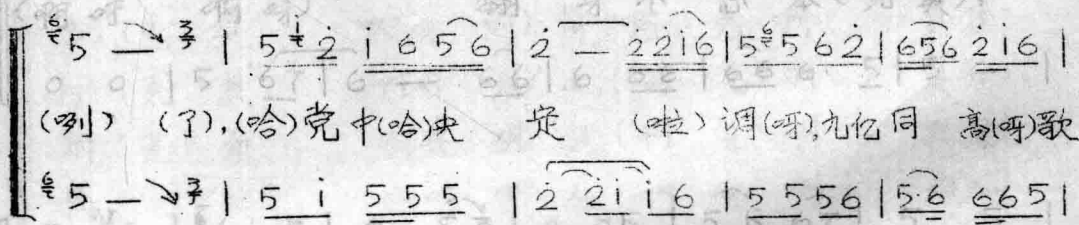 6 5 — ↘ 3 | 5 i 2̇ i̇ 6 5 6 | 2̇ — 2̇ 2̇ i̇ 6 | 5 6 5 6 2̇ | 6 5 6 2̇ i̇ 6 |
(咧) (了),(哈)党中(哈)央 定 (啦)调(呀),九亿同 高(呀)歌
6 5 — ↘ 3 | 5 i̇ 5 5 5 | 2̇ 2̇ i̇ i̇ 6 | 5 5 5 6 | 5·6 6 6 5 |